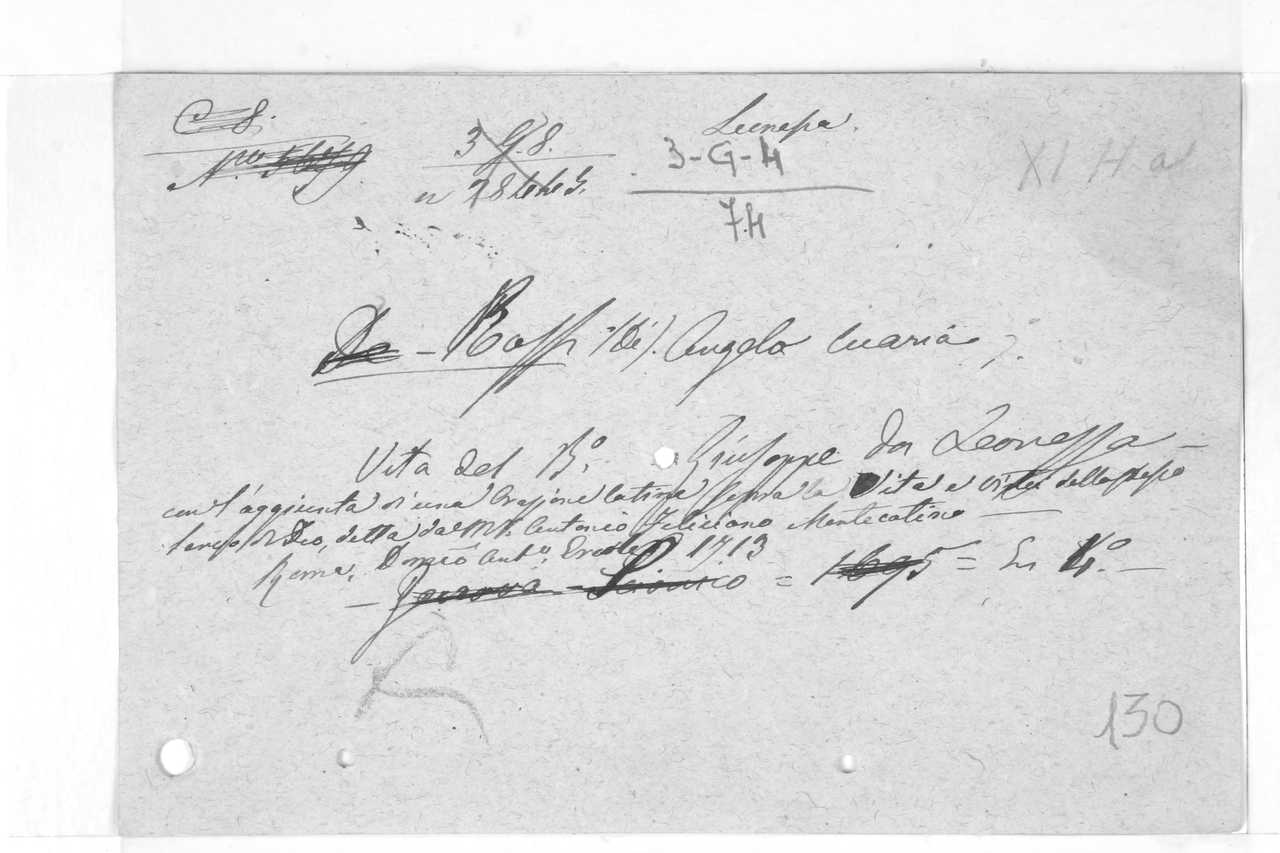 C 8.
N.ro 5679
3 G. 8.
n 28
Leonessa.
3-G-4
74
XI H a
De - Rossi (de). Angelo Maria ;.
Vita del B.o Giuseppe da Leonessa -
con l'aggiunta di una Orazione latina sopra la Vita e virtù dello stesso
servo di Dio, detta da Antonio Feliciano Montecatino
Roma, Domco Anto. Ercole 1713
- Genova - = 1695 = In 4.o -
130